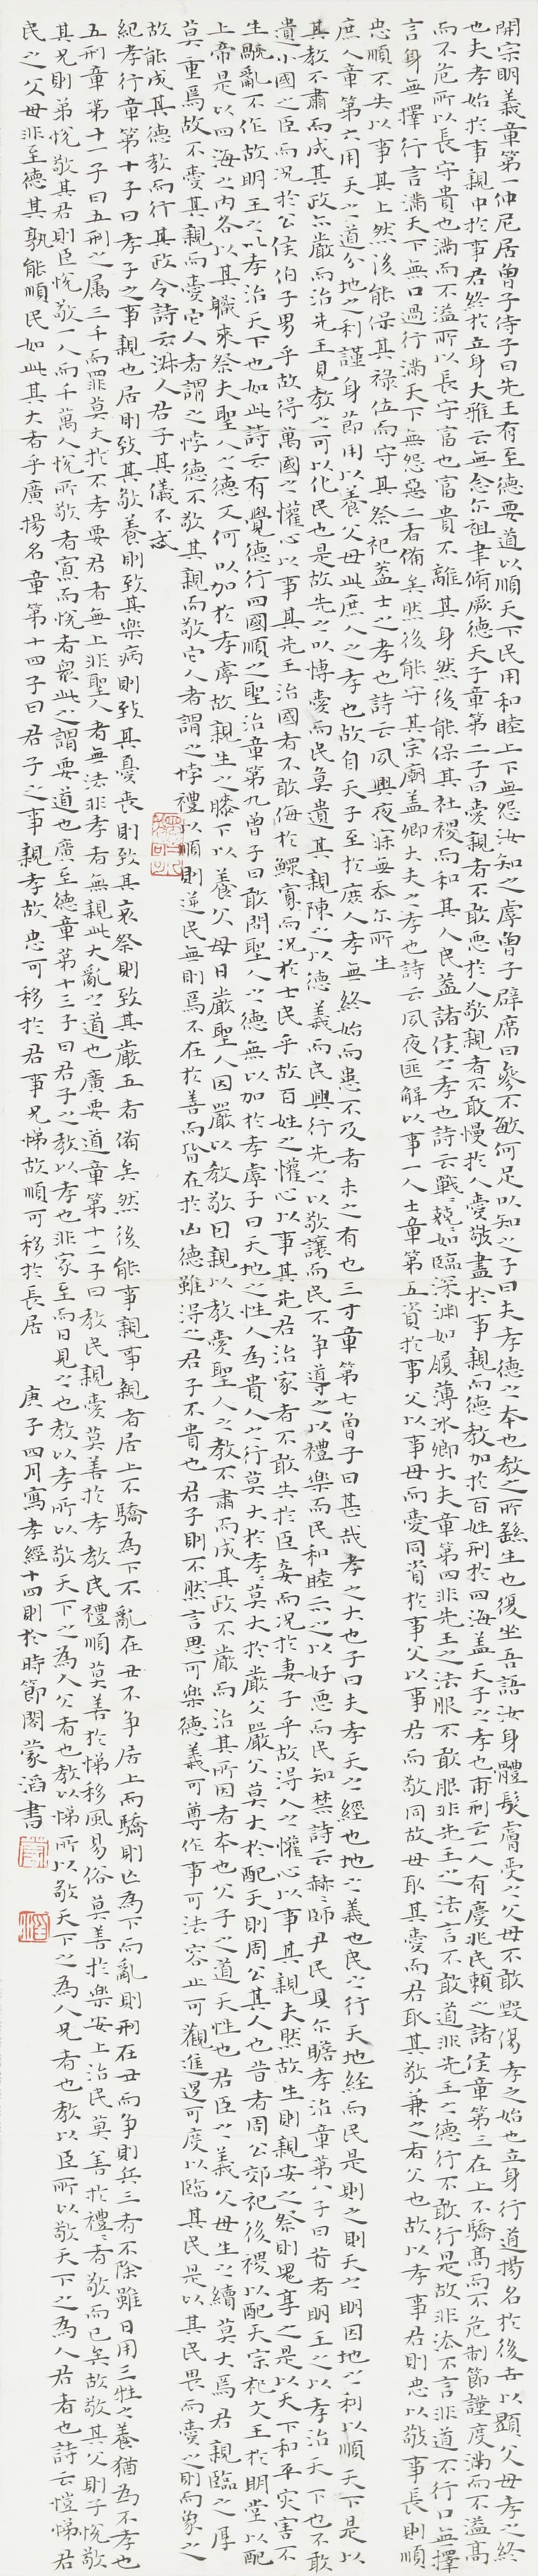 開宗明義章第一仲尼居曾子侍子曰先王有至德要道以順天下民用和睦上下無怨汝知之虖曾子辟席曰參不敏何足以知之子曰夫孝德之本也教之所繇生也復坐吾語汝身體髮膚受之父母不敢毀傷孝之始也立身行道揚名於後世以顯父母孝之終
也夫孝始於事親中於事君終於立身大雅云無念尔祖聿脩厥德天子章第二子曰愛親者不敢惡於人敬親者不敢慢於人愛敬盡於事親而德教加於百姓刑於四海蓋天子之孝也甫刑云一人有慶兆民賴之諸侯章第三在上不驕高而不危制節謹度滿而不溢高
而不危所以長守貴也滿而不溢所以長守富也富貴不離其身然後能保其社稷而和其人民蓋諸侯之孝也詩云戰〻兢〻如臨深淵如履薄冰卿大夫章第四非先王之法服不敢服非先王之法言不敢道非先王之德行不敢行是故非法不言非道不行口無擇
言身無擇行言滿天下無口過行滿天下無怨惡二者備矣然後能守其宗廟蓋卿大夫之孝也詩云夙夜匪解以事一人士章第五資於事父以事母而愛同資於事父以事君而敬同故母取其愛而君取其敬兼之者父也故以孝事君則忠以敬事長則順
忠順不失以事其上然後能保其祿位而守其祭祀蓋士之孝也詩云夙興夜寐無忝尔所生
庶人章第六用天之道分地之利謹身節用以養父母此庶人之孝也故自天子至於庶人孝無終始而患不及者未之有也三才章第七曾子曰甚哉孝之大也子曰夫孝天之經也地之義也民之行天地經而民是則之則天之明因地之利以順天下是以
其教不肅而成其政不嚴而治先王見教之可以化民也是故先之以博愛而民莫遺其親陳之以德義而民興行先之以敬讓而民不爭導之以禮樂而民和睦示之以好惡而民知禁詩云赫〻師尹民具尔瞻孝治章第八子曰昔者明王之以孝治天下也不敢
遺小國之臣而況於公侯伯子男乎故得萬國之懽心以事其先王治國者不敢侮於鰥寡而況於士民乎故百姓之懽心以事其先君治家者不敢失於臣妾而況於妻子乎故得人之懽心以事其親夫然故生則親安之祭則鬼享之是以天下和平灾害不
生禍亂不作故明王之以孝治天下也如此詩云有覺德行四國順之聖治章第九曾子曰敢問聖人之德無以加於孝虖子曰天地之性人為貴人之行莫大於孝〻莫大於嚴父嚴父莫大於配天則周公其人也昔者周公郊祀後稷以配天宗祀文王於明堂以配
上帝是以四海之內各以其職來祭夫聖人之德又何以加於孝虖故親生之膝下以養父母日嚴聖人因嚴以教敬因親以教愛聖人之教不肅而成其政不嚴而治其所因者本也父子之道天性也君臣之義父母生之續莫大焉君親臨之厚
莫重焉故不愛其親而愛它人者謂之悖德不敬其親而敬它人者謂之悖禮以順則逆民無則焉不在於善而皆在於凶德雖得之君子不貴也君子則不然言思可樂德義可尊作事可法容止可觀進退可度以臨其民是以其民畏而愛之則而象之
故能成其德教而行其政令詩云淑人君子其儀不忒
紀孝行章第十子曰孝子之事親也居則致其敬養則致其樂病則致其憂喪則致其哀祭則致其嚴五者備矣然後能事親事親者居上不驕為下不亂在丑不爭居上而驕則亡為下而亂則刑在丑而爭則兵三者不除雖日用三牲之養猶為不孝也
五刑章第十一子曰五刑之属三千而罪莫大於不孝要君者無上非聖人者無法非孝者無親此大亂之道也廣要道章第十二子曰教民親愛莫善於孝教民禮順莫善於悌移風易俗莫善於樂安上治民莫善於禮〻者敬而已矣故敬其父則子悅敬
其兄則弟悅敬其君則臣悅敬一人而千萬人悅所敬者寡而悅者衆此之謂要道也廣至德章第十三子曰君子之教以孝也非家至而日見之也教以孝所以敬天下之為人父者也教以悌所以敬天下之為人兄者也教以臣所以敬天下之為人君者也詩云愷悌君
民之父母非至德其孰能順民如此其大者乎廣揚名章第十四子曰君子之事親孝故忠可移於君事兄悌故順可移於長居
庚子四月寫孝經十四則於時節閣蒙滔書